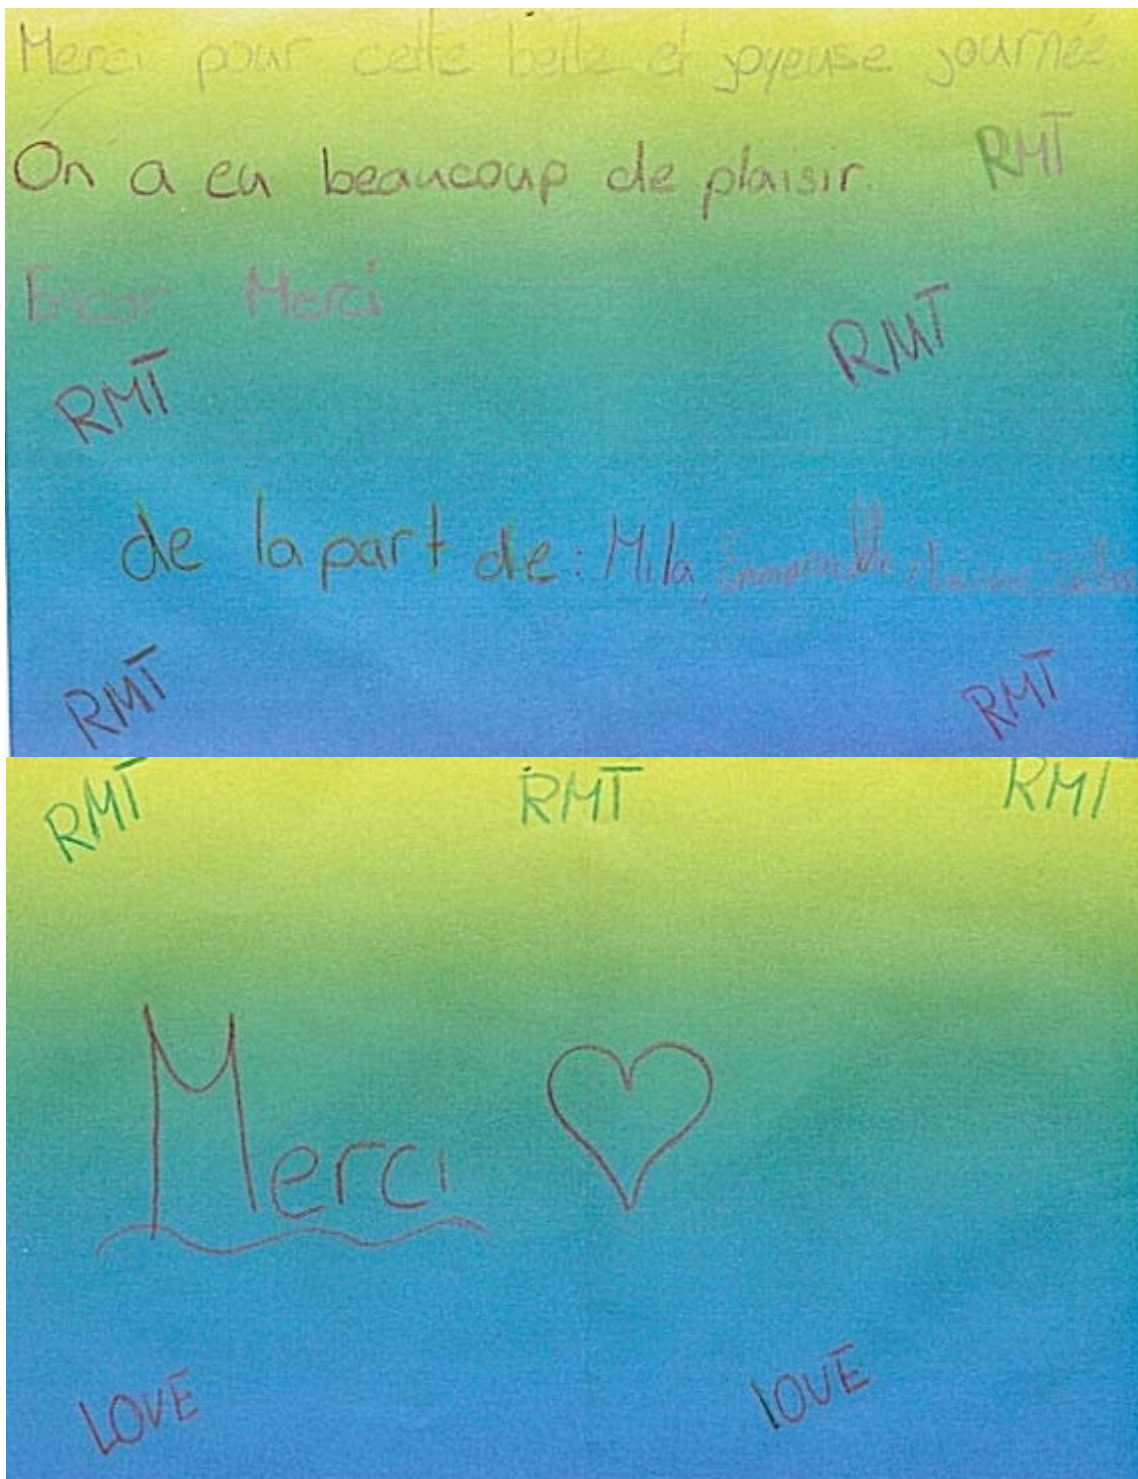 Merci pour cette belle et joyeuse journée
On a eu beaucoup de plaisir. RMT
Encor Merci
RMT
RMT
de la part de: Mila,
RMT
RMT
RMT RMT RMT
Merci
LOVE
lOVE